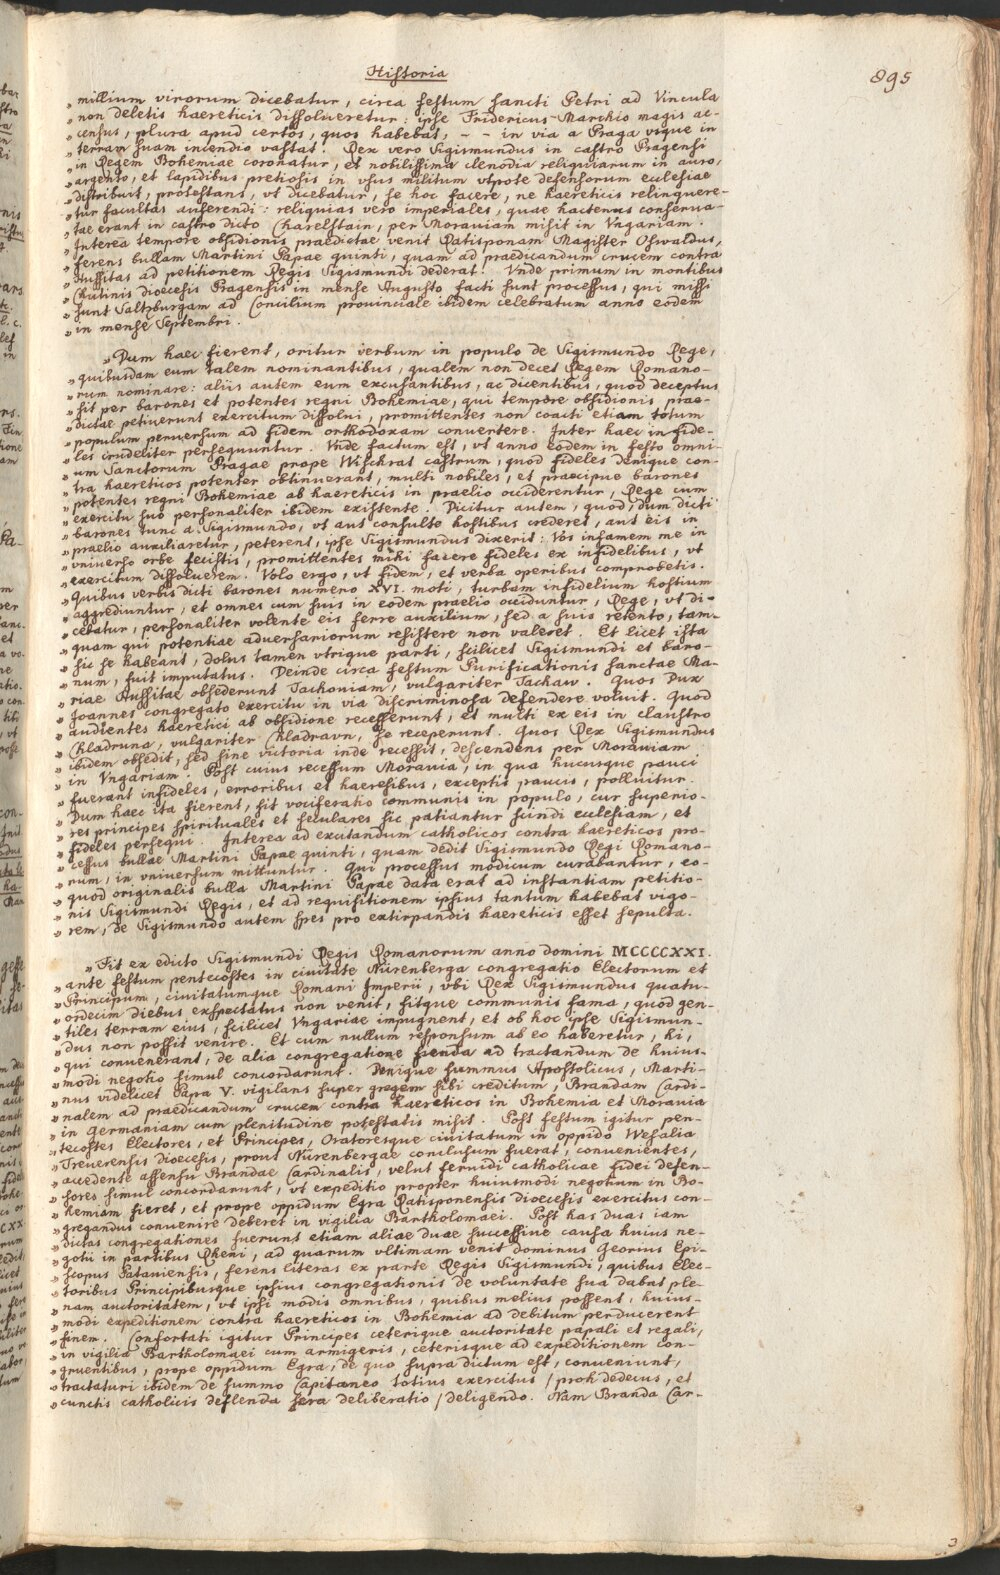 Historia
895
„ millium virorum dicebatur, circa festum sancti Petri ad Vincula
„ non deletis haereticis dissolueretur: ipse Fridericus Marchio magis ac-
„ census, plura apud certos, quos habebat, - - in via a Praga vsque in
„ terram suam incendio vastat. Rex vero Sigismundus in castro Pragensi
„ in Regem Bohemiae coronatur, et nobilissima clenodia reliquiarum in auro,
„ argento, et lapidibus pretiosis in vsus militum vtpote defensorum ecclesiae
„ distribuit, protestans, vt dicebatur, se hoc facere, ne haereticis relinquere-
„ tur facultas auferendi: reliquias vero imperiales, quae hactenus conserua-
„ tae erant in castro dicto Charelstain, per Morauiam misit in Vngariam.
„ Interea tempore obsidionis praedictae venit Ratisponam Magister Oswaldus,
„ ferens bullam Martini Papae quinti, quam ad praedicandum crucem contra
„ Hussitas ad petitionem Regis Sigismundi dederat. Vnde primum in montibus
„ Chutinis dioecesis Pragensis in mense Augusto facti sunt processus, qui missi
„ sunt Saltzburgam ad Concilium prouinciale ibidem celebratum anno eodem
„ in mense Septembri.
„ Dum haec fierent, oritur verbum in populo de Sigismundo Rege,
„ quibusdam eum talem nominantibus, qualem non decet Regem Romano-
„ rum nominare: aliis autem eum excusantibus, ac dicentibus, quod deceptus
„ sit per barones et potentes regni Bohemiae, qui tempore obsidionis prae-
„ dictae petiuerunt exercitum dissolui, promittentes non coacti etiam totum
„ populum peruersum ad fidem orthodoxam conuertere. Inter haec in fide-
„ les crudeliter persequuntur. Vnde factum est, vt anno eodem in festo omni-
„ um Sanctorum Pragae prope Wischrat castrum, quod fideles denique con-
„ tra haereticos potenter obtinuerant, multi nobiles, et praecipue barones
„ potentes regni Bohemiae ab haereticis in praelio occiderentur, Rege cum
„ exercitu suo personaliter ibidem existente. Dicitur autem, quod, dum dicti
„ barones tunc a Sigismundo, vt aut consulto hostibus crederet, aut eis in
„ praelio auxiliaretur, peterent, ipse Sigismundus dixerit: Vos infamem me in
„ vniuerso orbe fecistis, promittentes mihi facere fideles ex infidelibus, vt
„ exercitum dissoluerem. Volo ergo, vt fidem, et verba operibus comprobetis.
„ Quibus verbis dicti barones numero XVI. moti, turbam infidelium hostium
„ aggrediuntur, et omnes cum suis in eodem praelio occiduntur, Rege, vt di-
„ cebatur, personaliter volente eis ferre auxilium, sed a suis retento, tam-
„ quam qui potentiae aduersariorum resistere non valeret. Et licet ista
„ sic se habeant, dolus tamen vtrique parti, scilicet Sigismundi et baro-
„ num, fuit imputatus. Deinde circa festum Purificationis sanctae Ma-
„ riae Hussitae obsederunt Tachouiam, vulgariter Tachaw. Quos Dux
„ Joannes congregato exercitu in via discriminosa defendere voluit. Quod
„ audientes haeretici ab obsidione recesserunt, et multi ex eis in claustro
„ Chladruna, vulgariter Chladravn, se receperunt. Quos Rex Sigismundus
„ ibidem obsedit, sed sine victoria inde recessit, descendens per Morauiam
„ in Vngariam. Post cuius recessum Morauia, in qua hucusque pauci
„ fuerant infideles, erroribus et haeresibus, exceptis paucis, polluitur.
„ Dum haec ita fierent, fit vociferatio communis in populo, cur superio-
„ res principes spirituales et seculares sic patiantur scindi ecclesiam, et
„ fideles persequi. Interea ad excitandum catholicos contra haereticos pro-
„ cessus bullae Martini Papae quinti, quam dedit Sigismundo Regi Romano-
„ rum, in vniuersum mittuntur. Qui processus modicum curabantur, eo-
„ quod originalis bulla Martini Papae data erat ad instantiam petitio-
„ nis Sigismundi Regis, et ad requisitionem ipsius tantum habebat vigo-
„ rem, de Sigismundo autem spes pro extirpandis haereticis esset sepulta.
„ Fit ex edicto Sigismundi Regis Romanorum anno domini MCCCCXXI.
„ ante festum pentecostes in ciuitate Nürenberga congregatio Electorum et
„ Principum, ciuitatumque Romani Imperii, vbi Rex Sigismundus quatu-
„ ordecim diebus exspectatus non venit, fitque communis fama, quod gen-
„ tiles terram eius, scilicet Vngariae impugnent, et ob hoc ipse Sigismun-
„ dus non possit venire. Et cum nullum responsum ab eo haberetur, hi,
„ qui conuenerant, de alia congregatione fienda ad tractandum de huius-
„ modi negotio simul concordarunt. Denique summus Apostolicus, Marti-
„ nus videlicet Papa V. vigilans super gregem sibi creditum, Brandam Cardi-
„ nalem ad praedicandum crucem contra haereticos in Bohemia et Morauia
„ in Germaniam cum plenitudine potestatis misit. Post festum igitur pen-
„ tecostes Electores, et Principes, Oratoresque ciuitatum in oppido Wesalia
„ Treuerensis dioecesis, prout Nürenbergae conclusum fuerat, conuenientes,
„ accedente assensu Brandae Cardinalis, velut feruidi catholicae fidei defen-
„ sores simul concordarunt, vt expeditio propter huiusmodi negotium in Bo-
„ hemiam fieret, et prope oppidum Egra Ratisponensis dioecesis exercitus con-
„ gregandus conuenire deberet in vigilia Bartholomaei. Post has duas iam
„ dictas congregationes fuerunt etiam aliae duae successiue causa huius ne-
„ gotii in partibus Rheni, ad quarum vltimam venit dominus Georius Epi-
„ scopus Patauiensis, ferens literas ex parte Regis Sigismundi, quibus Elec-
„ toribus Principibusque ipsius congregationis de voluntate sua dabat ple-
„ nam auctoritatem, vt ipsi modis omnibus, quibus melius possent, huius-
„ modi expeditionem contra haereticos in Bohemia ad debitum perducerent
„ finem. Confortati igitur Principes ceterique auctoritate papali et regali,
„ in vigilia Bartholomaei cum armigeris, ceterisque ad expeditionem con-
„ gruentibus, prope oppidum Egra, de quo supra dictum est, conueniunt,
„ tractaturi ibidem de summo Capitaneo totius exercitus /proh dedecus, et
„ cunctis catholicis deflenda sera deliberatio/ deligendo. Nam Branda Car-